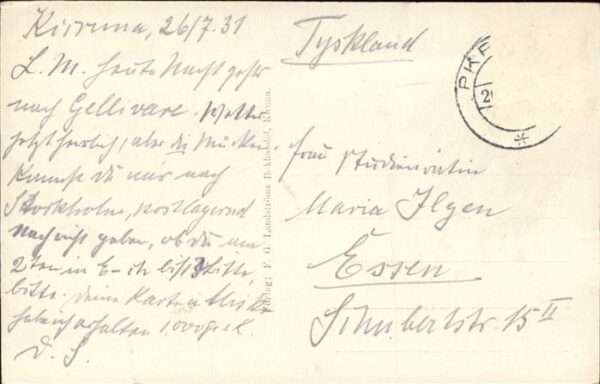 Kiruna, 26/7.31
L. M. heute Nacht gehts
nach Gellivare. Wetter
jetzt herrlich, aber die Mücken.
Kannst du mir nach
Stockholm, postlagernd
Nachricht geben, ob du am
2ten in E- ich bitte
bitte. deine Karten
habe ich erhalten 1000
D. S.
Tyskland
PKF
Frau Studienrätin
Maria Ilgen
Essen
Schubertstr. 15 II
Verlag: F. G. Landströms Bokhandel, Kiruna.